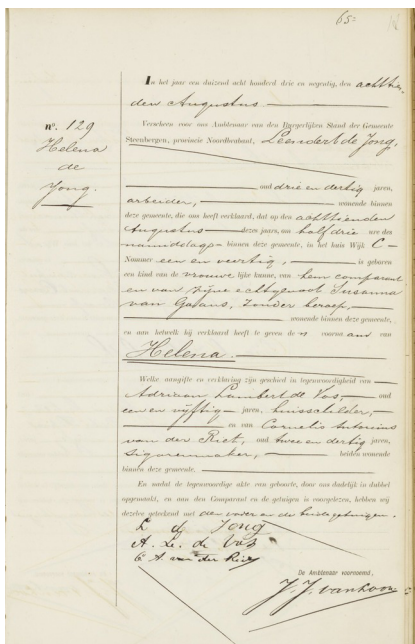 65
In het jaar een duizend acht honderd drie en negentig, den achttien-
den Augustus
Verscheen voor ons Ambtenaar van den Burgerlijken Stand der Gemeente
Steenbergen, provincie Noordbrabant, Leendert de Jong,
oud drie en dertig jaren,
arbeider, wonende binnen
deze gemeente, die ons heeft verklaard, dat op den achttienden
Augustus dezes jaars, om half drie ure des
namiddags binnen deze gemeente, in het huis Wijk C
Nommer een en veertig, is geboren
een kind van de vrouwelijke kunne, van hem comparant
en van zijne echtgenoot Susanna
van Gaans, zonder beroep,
wonende binnen deze gemeente,
en aan hetwelk hij verklaard heeft te geven de voornaam van
Helena.
Welke aangifte en verklaring zijn geschied in tegenwoordigheid van
Adriaan Lambert de Vos, oud
een en vijftig jaren, huisschilder,
en van Cornelis Antonius
van der Riet, oud twee en dertig jaren,
sigarenmaker, beiden wonende
binnen deze gemeente.
En is dat de tegenwoordige akte van geboorte, door ons dadelijk in dubbel
opgemaakt, en aan den Comparant en de getuigen is voorgelezen, hebben wij
dezelve geteekend met den vader en de beide getuigen.
L de Jong
A. L. de Vos
C A. van der Riet
De Ambtenaar voornoemd,
J. J. van Loon
no. 129
Helena
de
Jong.